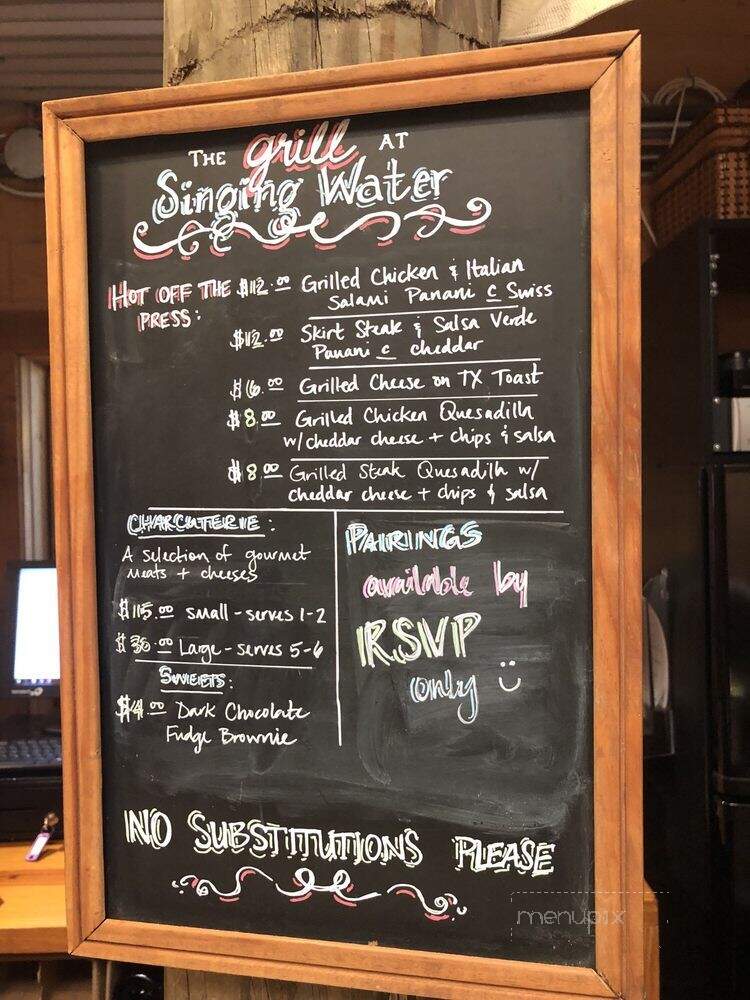 THE grill AT
Singing Water
HOT OFF THE $12.00 Grilled Chicken & Italian
PRESS: Salami Panani c Swiss
$12.00 Skirt Steak & Salsa Verde
Panani c cheddar
$6.00 Grilled Cheese on TX Toast
$8.00 Grilled Chicken Quesadilla
w/cheddar cheese + chips & salsa
$8.00 Grilled Steak Quesadilla w/
cheddar cheese + chips & salsa
CHARCUTERIE:
A selection of gourmet
meats + cheeses
$15.00 small - serves 1-2
$30.00 Large - serves 5-6
SWEETS:
$4.00 Dark Chocolate
Fudge Brownie
PAIRINGS
available by
RSVP
only
NO SUBSTITUTIONS PLEASE
menupix